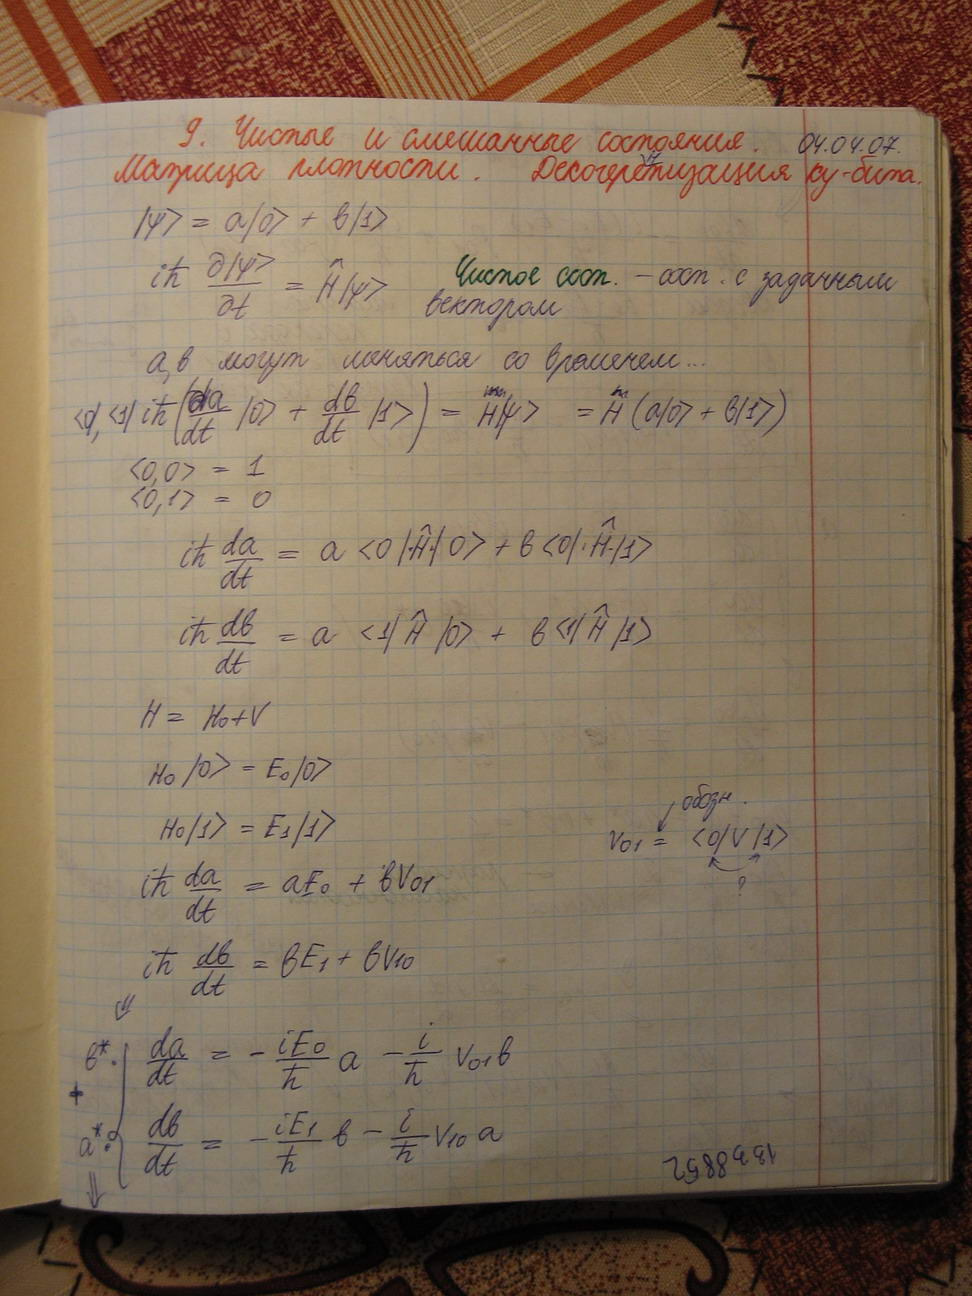 9. Чистые и смешанные состояния. 04.04.07.
Матрица плотности. Декогеретизация ку-бита.
|ψ> = a|0> + b|1>
iħ ∂|ψ>/∂t = Ĥ|ψ> Чистое сост. – сост. с заданным
вектором
a, b могут меняться со временем...
<0|, <1| iħ (da/dt |0> + db/dt |1>) = H|ψ> = H (a|0> + b|1>)
<0,0> = 1
<0,1> = 0
iħ da/dt = a <0|·Ĥ·|0> + b <0|·Ĥ·|1>
iħ db/dt = a <1|Ĥ|0> + b <1|Ĥ|1>
H = H₀ + V
H₀|0> = E₀|0>
обозн.
H₀|1> = E₁|1>
V₀₁ = <0|V|1>
?
iħ da/dt = aE₀ + bV₀₁
iħ db/dt = bE₁ + bV₁₀
⇓
b*· da/dt = - iE₀/ħ a - i/ħ V₀₁b
+
a*· db/dt = - iE₁/ħ b - i/ħ V₁₀ a
⇓
1338852